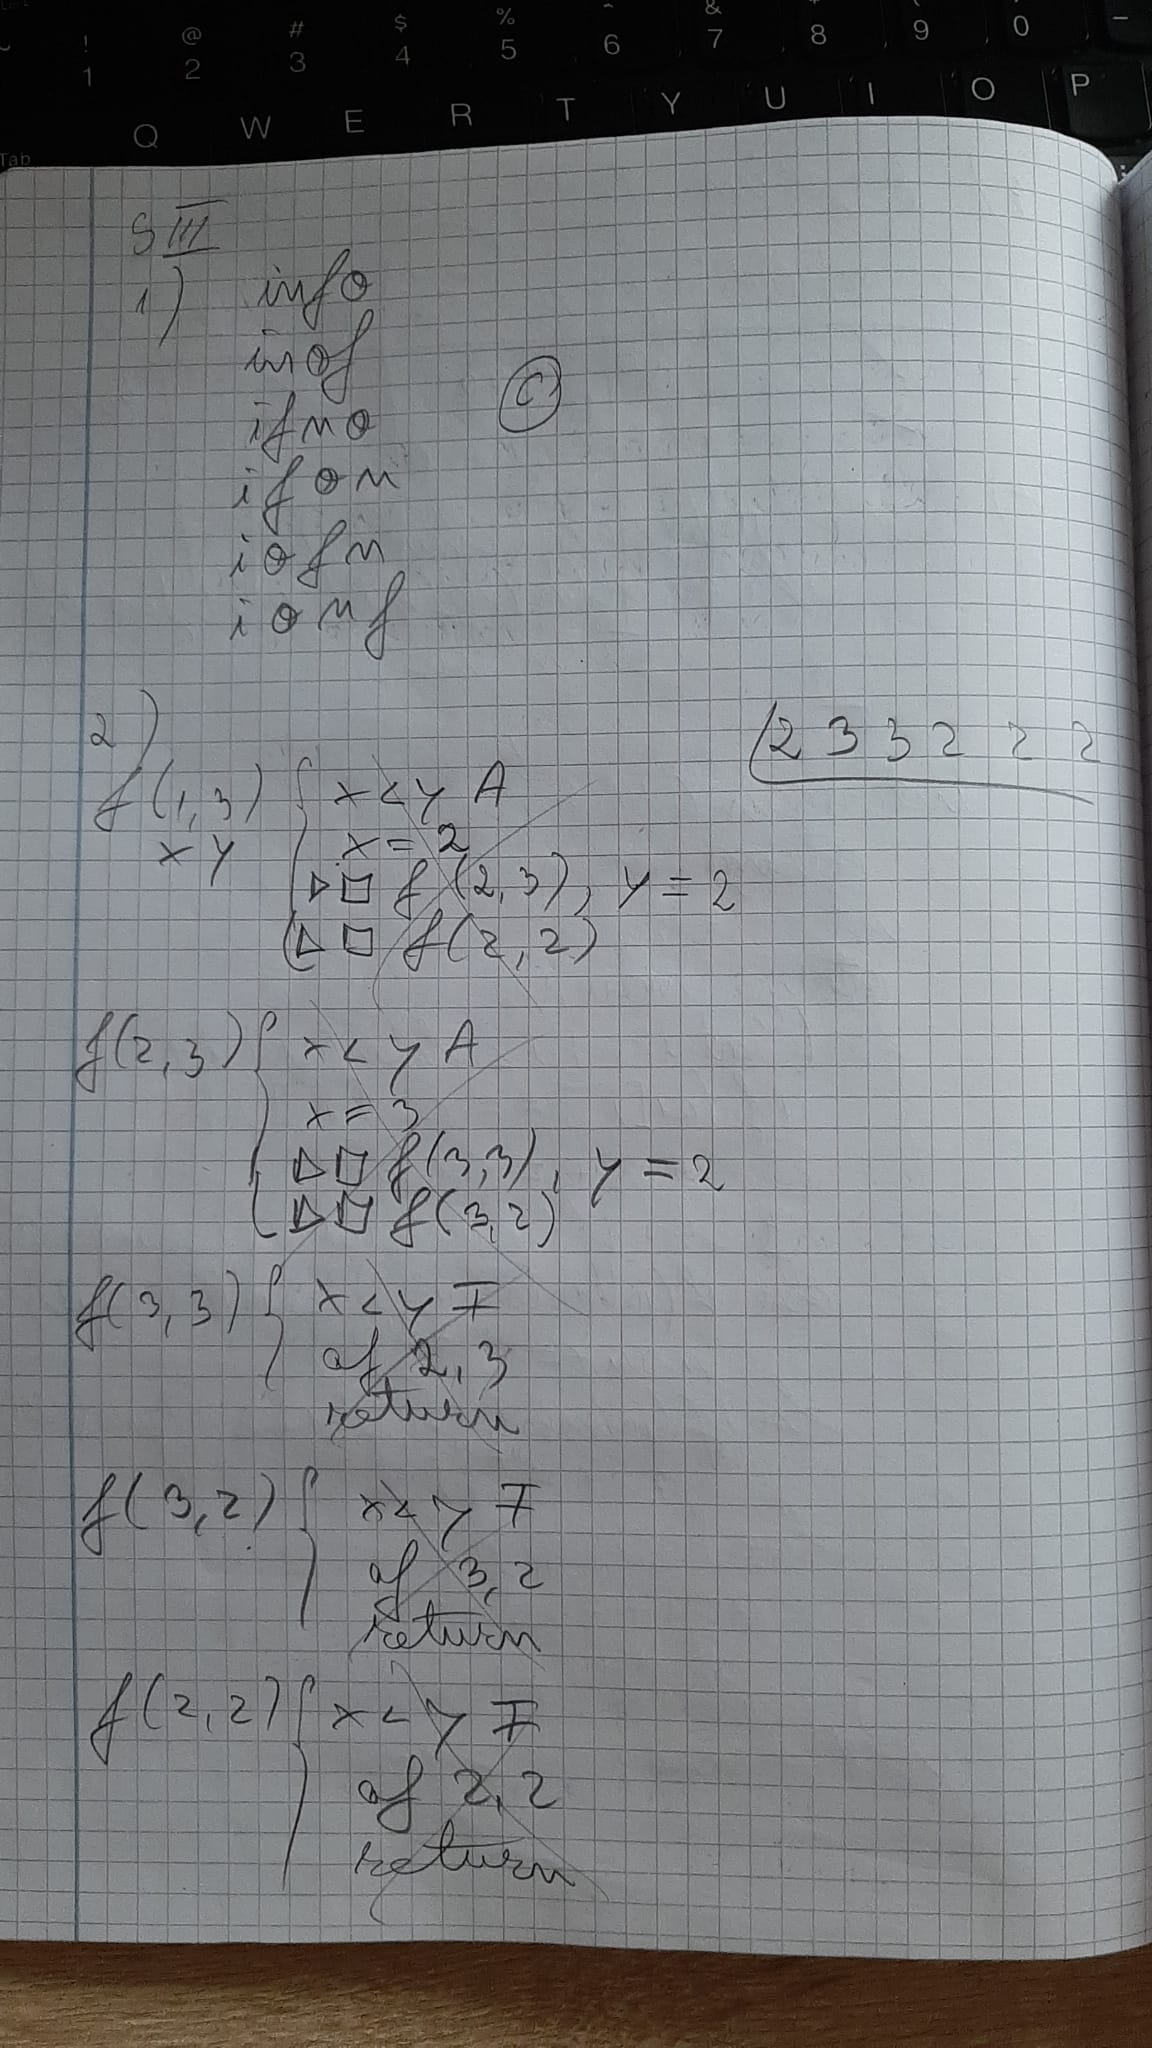 ! @ # $ % ^ & ( )
1 2 3 4 5 6 7 8 9 0
Q W E R T Y U I O P
Tab
S III
1) info
inof
ifno
ifon
iofn
ionf
C
2)
2 3 3 2 2 2
f(1,3) { x<y A
x y
x=2
▷□ f(2,3), y=2
▷□ f(2,2)
f(2,3) { x<y A
x=3
▷□ f(3,3), y=2
▷□ f(3,2)
f(3,3) { x<y F
af 2,3
return
f(3,2) { x<y F
af 3,2
return
f(2,2) { x<y F
af 2,2
return